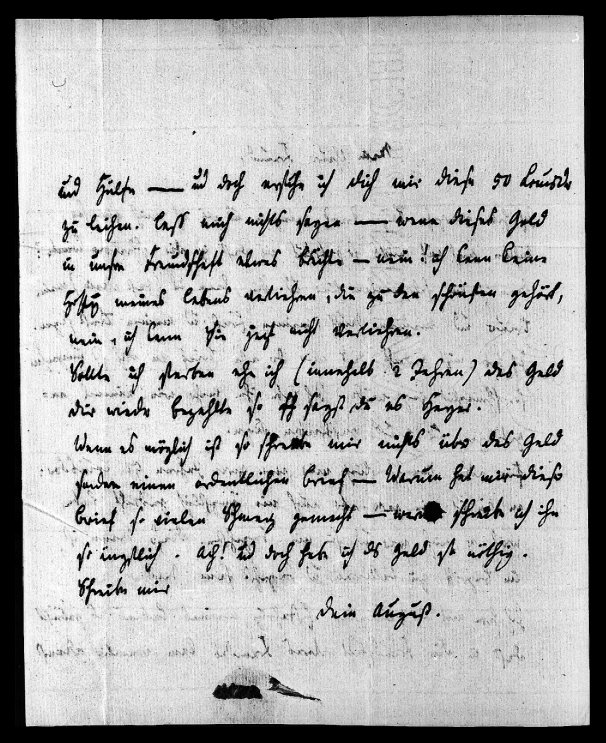 und Hülfe — und doch ersuche ich dich mir diese 50 Louisdr
zu leihen. Laß mich nichts sagen — wenn dieses Geld
in unsre Freundschaft etwas brächte — nein! ich kann keine
meines Lebens verliehren, die zu den schönsten gehört,
nein, ich kann Sie jezt nicht verliehren.
Sollte ich sterben ehe ich (innerhalb 2 Jahren) das Geld
dir wieder bezahlte so sagst du es Heyer.
Wenn es möglich ist so schreibe mir nichts über das Geld
sondern einen ordentlichen Brief — Warum hat mir dieser
Brief so vielen Schmerz gemacht — warum schreibe ich ihn
so ängstlich. Ach! und doch habe ich das Geld so nöthig.
Schreibe mir
Dein August.